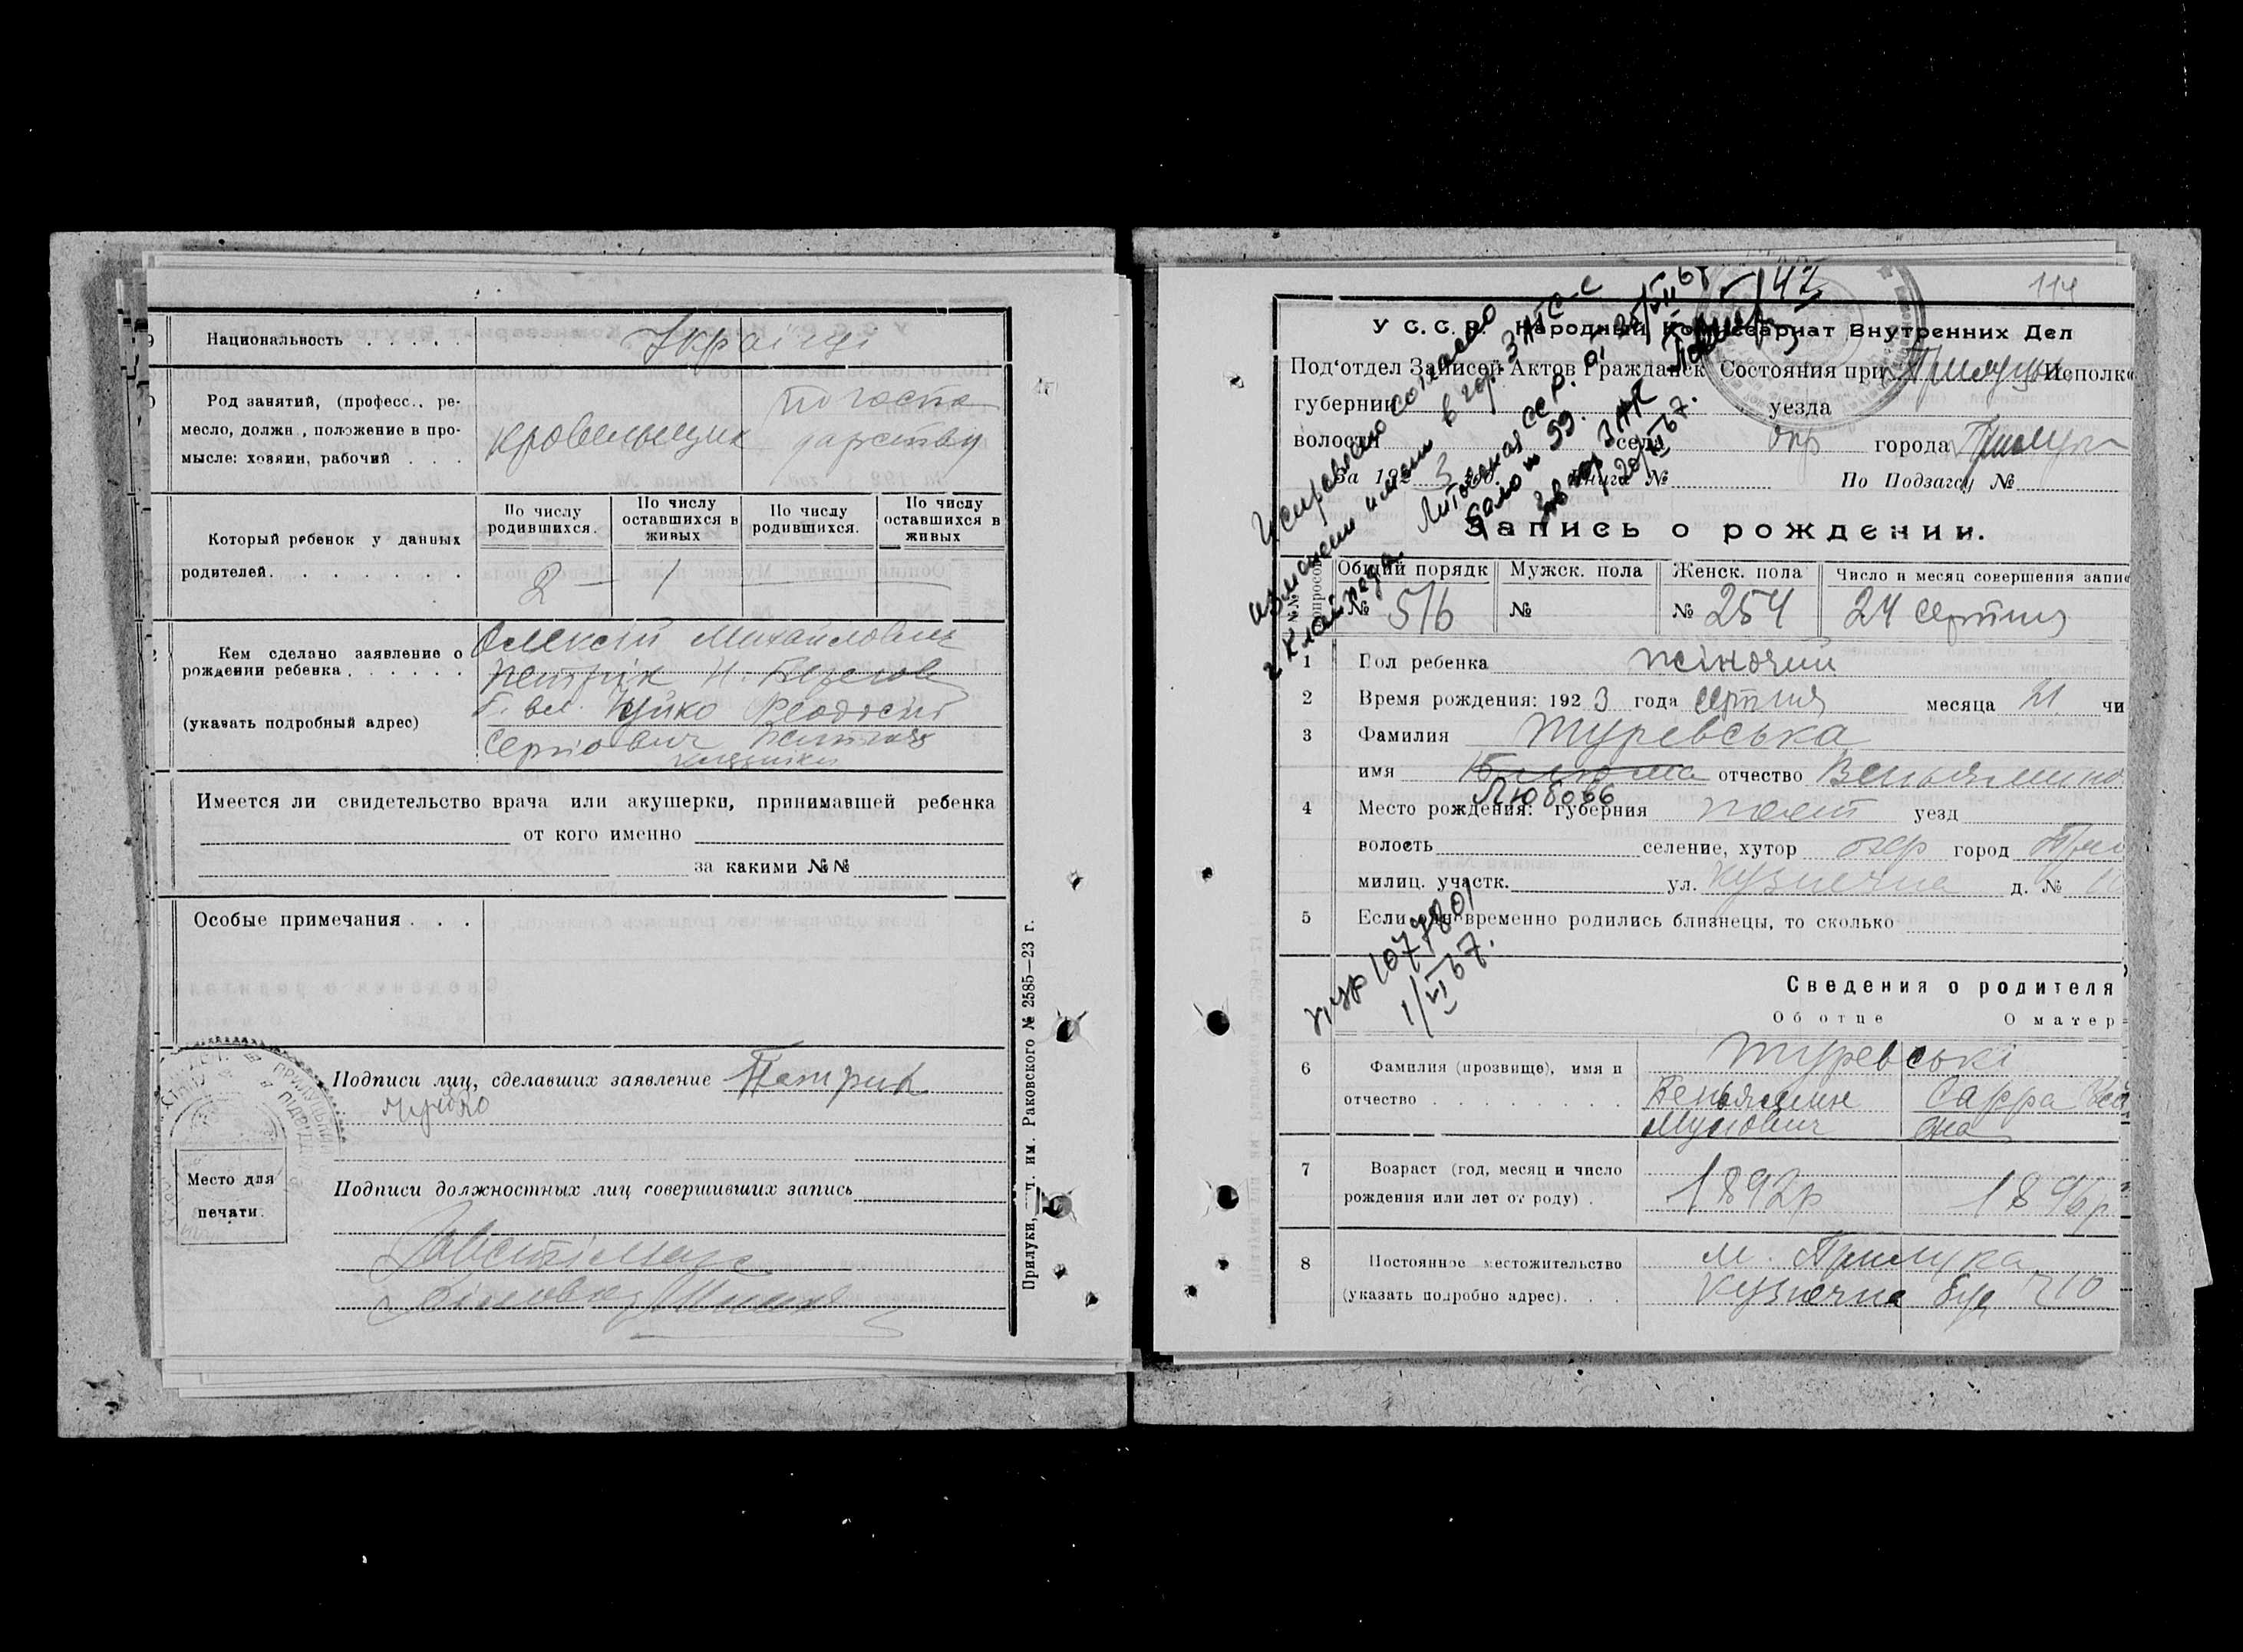 Национальность . . . . . Українці
Род занятий, (професс., ре-
месло, должн., положение в про-
мысле: хозяин, рабочий . . .
кровельщик
по госпо
дарству
Который ребенок у данных
родителей. . . . . . . .
По числу родившихся. По числу оставшихся в живых По числу родившихся. По числу оставшихся в живых
2 — 1 — —
Кем сделано заявление о
рождении ребенка . . . . . .
(указать подробный адрес)
Олексій Михайлович
Петрік
Феодосій
Сергіович
Имеется ли свидетельство врача или акушерки, принимавшей ребенка
от кого именно
за какими №№
Особые примечания . . .
Подписи лиц, сделавших заявление Петрик
Место для
печати.
Подписи должностных лиц совершивших запись
Прилуки, им. Раковского № 2585—23 г.
114
У С. С. Р. Народный Комиссариат Внутренних Дел
Под'отдел Записей Актов Гражданск Состояния при Исполк
губернии уезда
волости села окр города Прилук
За 1923 год. Книга № По Подзагсу №
Запись о рождении.
№№ вопросов
Общий порядк Мужск. пола Женск. пола Число и месяц совершения запи
№ 516 № № 254 24 серпня
1 Пол ребенка жіночий
2 Время рождения: 1923 года серпня месяца 21 чи
3 Фамилия Туревська
имя отчество Веньямино
Любовь
4 Место рождения: губерния полт уезд
волость селение, хутор окр город При
милиц. участк. ул. Кузнечна д. № 10
5 Если одновременно родились близнецы, то сколько
Сведения о родителя
Об отце О матер
6 Фамилия (прозвище), имя и
отчество . . . . . . . .
Туревські
Веньямин Сарра
7 Возраст (год, месяц и число
рождения или лет от роду) .
1892р 1896р
8 Постоянное местожительство
(указать подробно адрес). . .
м. Прилука
Кузнечна буд 10
Исправлено согласно
изменении имени в гор. ЗАГС-е
г. Клайпеда Литовская ССР.
1/VI 67.